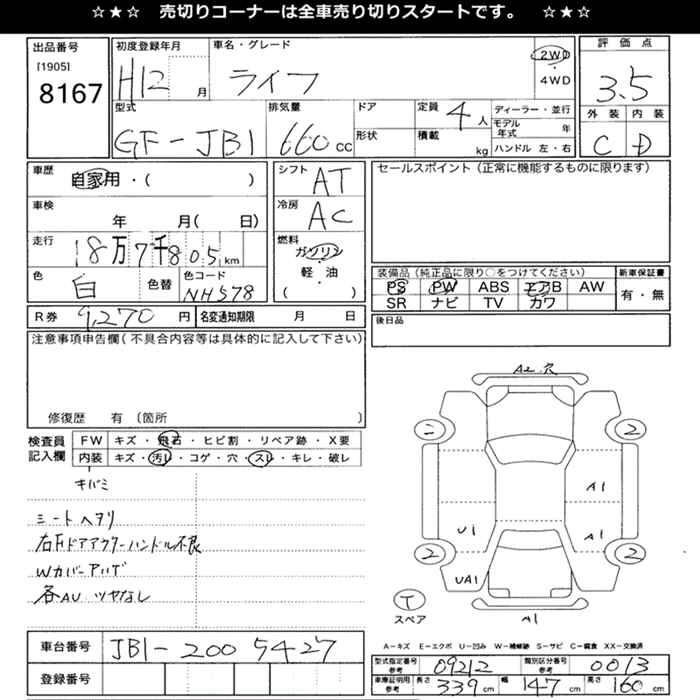 ☆★☆ 売切りコーナーは全車売り切りスタートです。 ☆★☆
出品番号 初度登録年月 車名・グレード 評価点
[1905]
8167 H12 月 ライフ 2WD・4WD 3.5
型式 排気量 ドア 定員 ディーラー・並行 外装 内装
GF-JB1 660 CC 形状 4人 モデル年式 年 C D
積載 kg ハンドル 左・右
車歴 自家用・( ) シフト AT セールスポイント(正常に機能するものに限ります)
車検 年 月( 日) 冷房 AC
走行 18万7千805km 燃料 ガソリン・軽・油 ( )
色 白 色替 色コード NH578
装備品(純正品に限り○をつけてください) 新車保証書
PS PW ABS エアB AW 有・無
SR ナビ TV カワ
R券 9,270 円 名変通知期限 月 日 後日品
注意事項申告欄(不具合内容等は具体的に記入して下さい)
修復歴 有(箇所 )
検査員記入欄 FW キズ・飛石・ヒビ割・リペア跡・X要
内装 キズ・汚レ・コゲ・穴・スレ・キレ・破レ
キバミ
シートヘタリ
右Fドアアウターハンドル不良
Wカバーアハゲ
各AU ツヤなし
A2 穴
ニ 2
A1
U1 A1
2 2
UA1
T スペア A1
A-キズ E-エクボ U-凹み W-補修跡 S-サビ C-腐食 XX-交換済
車台番号 JB1-2005427
登録番号
型式指定番号 参考 09212 類別区分番号 参考 0013
車庫証明用 参考 長さ 339 cm 幅 147 cm 高さ 160 cm